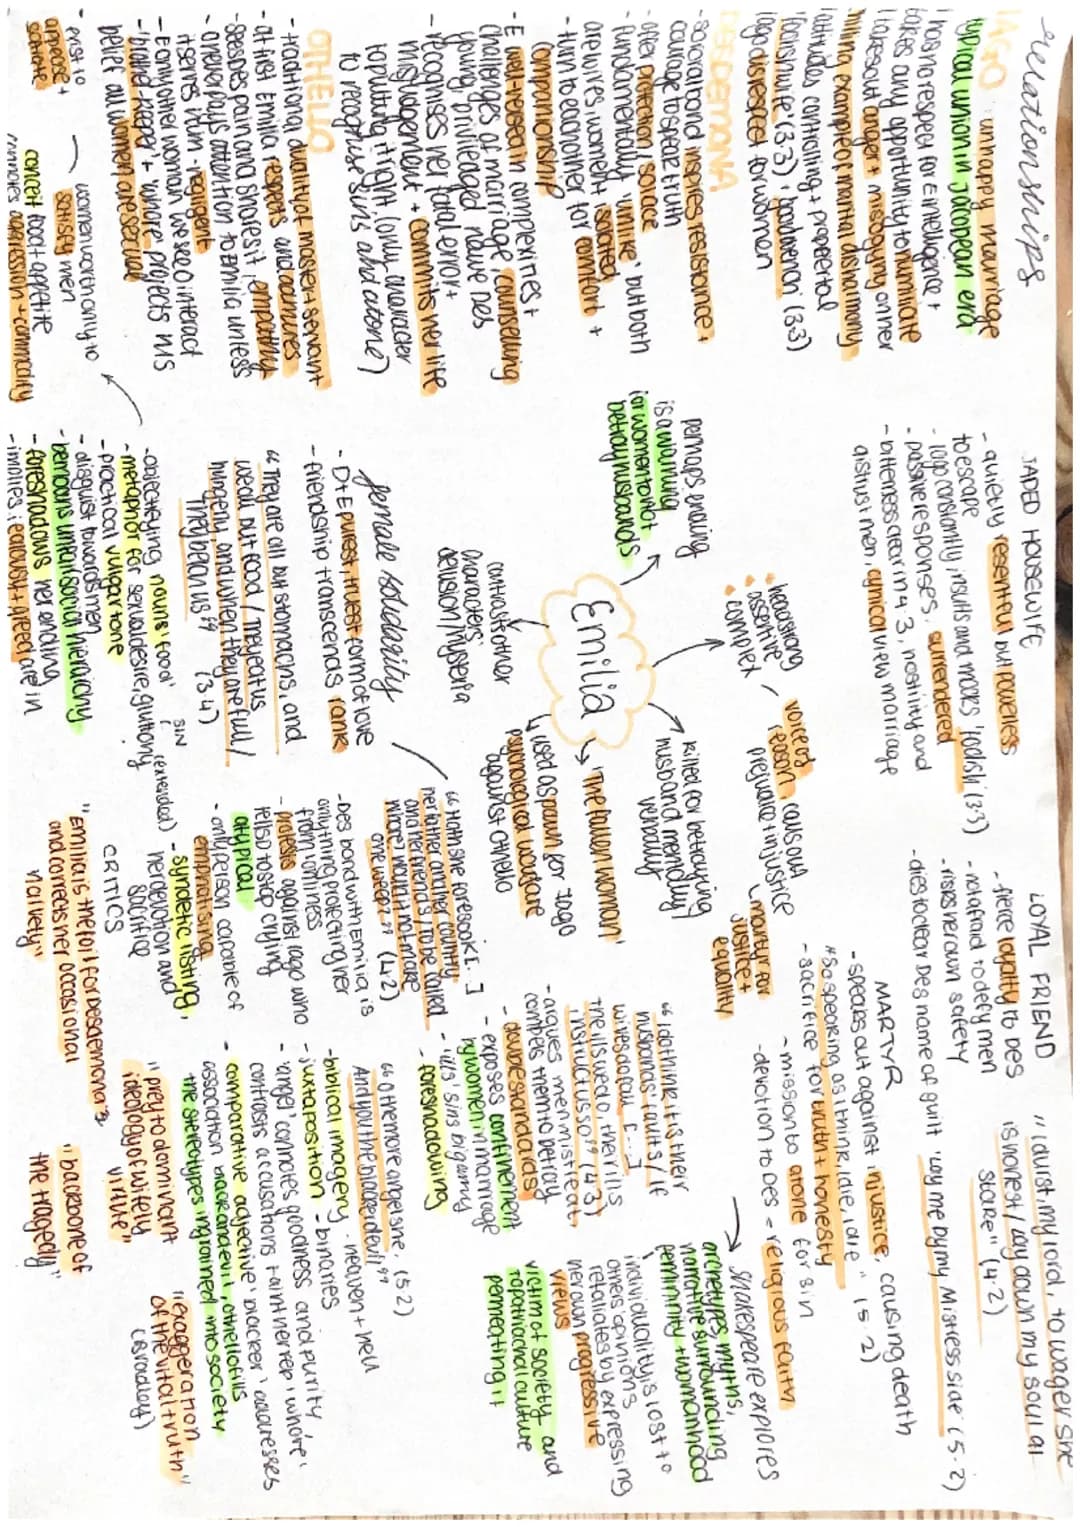 relationships
IAGO unhappy marriage
typical union in Jacobean era
I has no respect for E intelligence +
takes any opportunity to humiliate
I takes out anger + misogyny on her
killing example of marital disharmony
I attitudes controlling + properetal
'foolish wife' (3.3), 'good wench' (3.3)
Iago disrespect for women
DESDEMONA
- sororal bond inspires resistance +
courage to speak truth
- offer protection / solace
- fundamentally virtue, but both
are wives women, isolated,
- turn to eachother for comfort +
companionship
- E well-versed in complexities +
challenges of marriage, counselling
young, privileged naive Des
- recognises her fatal error +
misjudgement + commits her life
to putting it right (only character
to recognise sins and atone)
OTHELLO
- traditional duality of master + servant
- at first Emilia respects and admires
- senses pain and shares it, empathy
- O never pays attention to Emilia unless
it serves him - negligent
- E only other woman we see O interact
- 'brothel-keeper' + 'whore' projects his
belief all women are sexual
JADED HOUSEWIFE
- quietly resentful but powerless
to escape
- Iago constantly insults and mocks 'foolish' (3.3)
- passive responses, surrendered
- bitterness clear in 4.3, hostility and
distrust men, cynical view marriage
LOYAL FRIEND
- fierce loyalty to Des
- not afraid to defy men
- risks her own safety
- dies to clear Des name of guilt 'lay me by my Mistress side' (5.2)
"I durst, my lord, to wager she
is honest / lay down my soul at
stake" (4.2)
MARTYR
- speaks out against injustice, causing death
"so speaking as I think, I die, I die" (5.2)
- sacrifice for truth + honesty
- mission to atone for sin
- devotion to Des = religious faith
Emilia
perhaps ending
is a warning
for women to not
betray husbands
• headstrong
• assertive
• complex
voice of
reason, calls out
prejudice + injustice
martyr for
justice +
equality
killed for betraying
husband mentally/
verbally
'The fallen woman'
used as pawn for Iago
psychological warfare
against Othello
contrast other
characters'
delusion/hysteria
Shakespeare explores
archetypes, myths,
narrative surrounding
femininity + womanhood
individuality is lost to
others opinions
retaliates by expressing
her own progressive
views
victim of society and
patriarchal culture
permeating it
female solidarity
- D + E purest, truest form of love
- friendship transcends rank
"They are all but stomachs, and
we all but food / They eat us
hungerly, and when they are full /
They belch us" (3.4)
- objectifying nouns 'food' sin
- metaphor for sexual desire, gluttony (extended)
- practical vulgar tone
- disgust towards men
- bemoans unfair social hierarchy
- foreshadows her ending
- implies jealousy + greed are in
women worth only to
satisfy men
exist to
appease +
satiate
conceit food + appetite
mirrors agression + commodity
"Hath she forsook [...]
her father and her country
and her friends / To be called
whore? Would it not make
one weep?" (4.2)
- Des bond with Emilia is
only thing protecting her
from loneliness
- protests against Iago who
tells D to stop crying
atypical
- only person capable of
emphatising
- syndetic listing,
her devotion and
sacrifice
"I do think it is their
husbands' faults / If
wives do fall [...]
The ills we do, their ills
instruct us so" (4.3)
- argues men mistreat,
compels them to betray
- double standards
- exposes confinement
by women in marriage
- 'ills' sins bigamy
- foreshadowing
"O the more angel she,
And you the blacker devil" (5.2)
- biblical imagery - heaven + hell
- juxtaposition - binaries
- 'angel' connotes goodness and purity,
contrasts accusations taint her rep 'whore'
- comparative adjective 'blacker' addresses
association black and evil, othello fills
the stereotypes ingrained into society
CRITICS
"Emilia is the foil for Desdemona
and corrects her occasional
naivety"
"prey to dominant
ideology of wifely
virtue"
"backbone of
the tragedy"
"exaggeration
of the vital truth"
(Bradley)